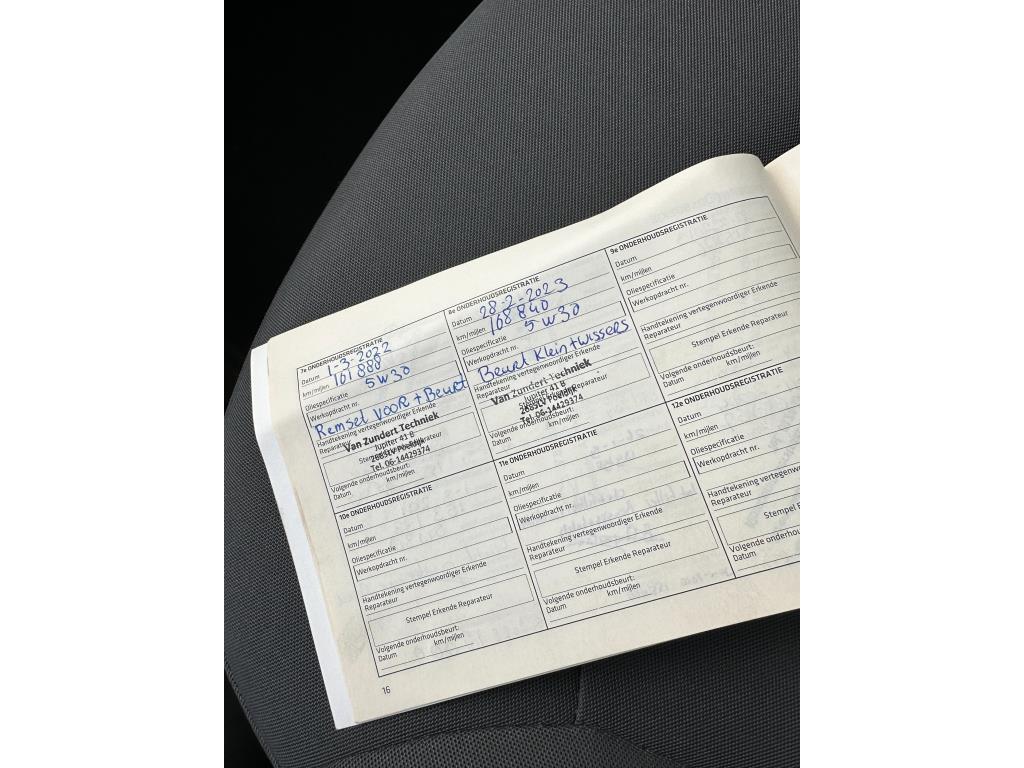 7e ONDERHOUDSREGISTRATIE
Datum 1-3-2022
km/mijlen 161 888
Oliespecificatie 5W30
Werkopdracht nr.
Remsel VOOR + Beurt
Handtekening vertegenwoordiger Erkende
Reparateur
Van Zundert Techniek
Jupiter 41 B
2685LV Poeldijk
Tel. 06-14429374
Volgende onderhoudsbeurt:
Datum km/mijlen
8e ONDERHOUDSREGISTRATIE
Datum 28-2-2023
km/mijlen 168 840
Oliespecificatie 5W30
Werkopdracht nr.
Beurt Klein + wissers
Handtekening vertegenwoordiger Erkende
Reparateur
Van Zundert Techniek
Jupiter 41 B
2685LV Poeldijk
Tel. 06-14429374
Volgende onderhoudsbeurt:
Datum km/mijlen
9e ONDERHOUDSREGISTRATIE
Datum
km/mijlen
Oliespecificatie
Werkopdracht nr.
Handtekening vertegenwoordiger Erkende
Reparateur
Stempel Erkende Reparateur
Volgende onderhoudsbeurt:
Datum km/mijlen
10e ONDERHOUDSREGISTRATIE
Datum
km/mijlen
Oliespecificatie
Werkopdracht nr.
Handtekening vertegenwoordiger Erkende
Reparateur
Stempel Erkende Reparateur
Volgende onderhoudsbeurt:
Datum km/mijlen
11e ONDERHOUDSREGISTRATIE
Datum
km/mijlen
Oliespecificatie
Werkopdracht nr.
Handtekening vertegenwoordiger Erkende
Reparateur
Stempel Erkende Reparateur
Volgende onderhoudsbeurt:
Datum km/mijlen
12e ONDERHOUDSREGISTRATIE
Datum
km/mijlen
Oliespecificatie
Werkopdracht nr.
Handtekening vertegenwoordiger
Reparateur
Stempel
Volgende onderhoudsbeurt:
Datum
16